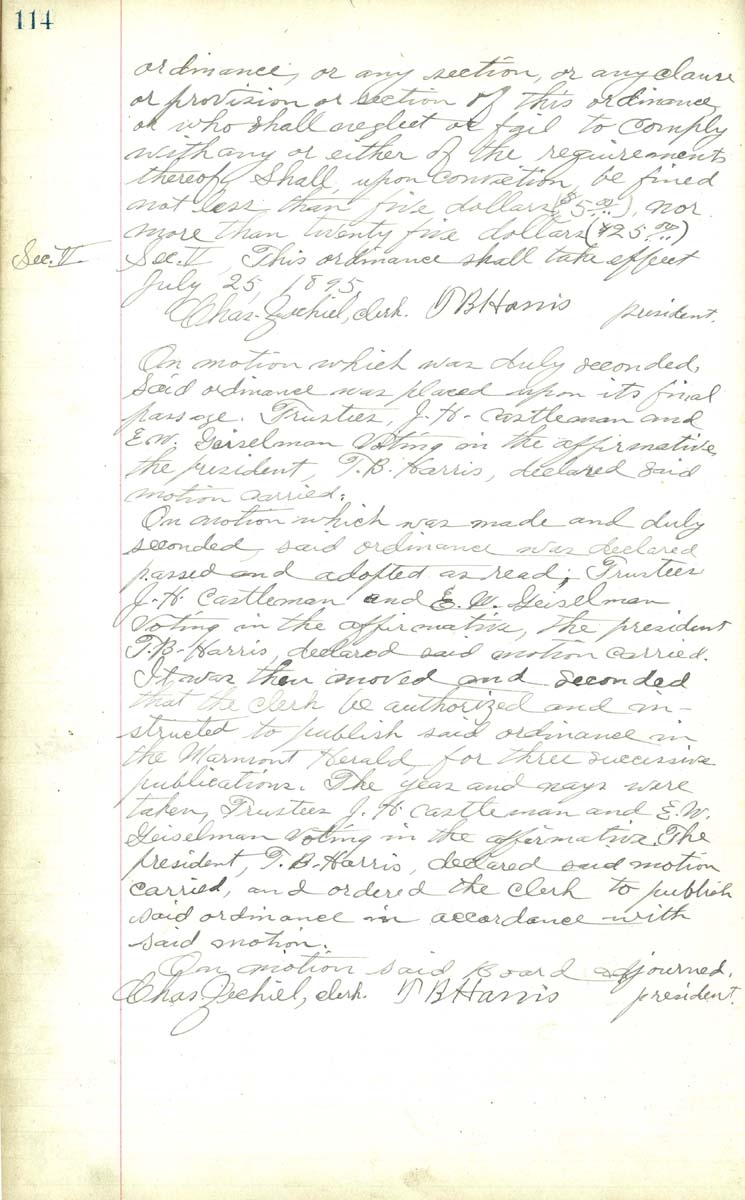 114
ordinance, or any section, or any clause
or provision or section of this ordinance,
or who shall neglect or fail to comply
with any or either of the requirements
thereof, Shall, upon conviction, be fined
not less than five dollars ($5.00), nor
more than twenty five dollars ($25.00)
Sec. V
Sec. V, This ordinance shall take effect
July 25, 1895.
Chas. Zechiel, clerk. T B Harris president.
On motion which was duly seconded,
said ordinance was placed upon its final
passage. Trustees, J. H. Castleman and
E. W. Geiselman Voting in the affirmative,
the president, T. B. Harris, declared said
motion carried.
On motion which was made and duly
seconded, said ordinance was declared
passed and adopted as read; Trustees
J. H. Castleman and E. W. Geiselman
Voting in the affirmative, the president
T. B. Harris, declared said motion carried.
It was then moved and seconded
that the clerk be authorized and in-
structed to publish said ordinance in
the Marmont Herald, for three successive
publications. The yeas and nays were
taken, Trustees J. H. Castleman and E. W.
Geiselman Voting in the affirmative. The
president, T. B. Harris, declared said motion
carried, and ordered the clerk to publish
said ordinance in accordance with
said motion.
On motion said Board adjourned.
Chas Zechiel, clerk. T B Harris president.